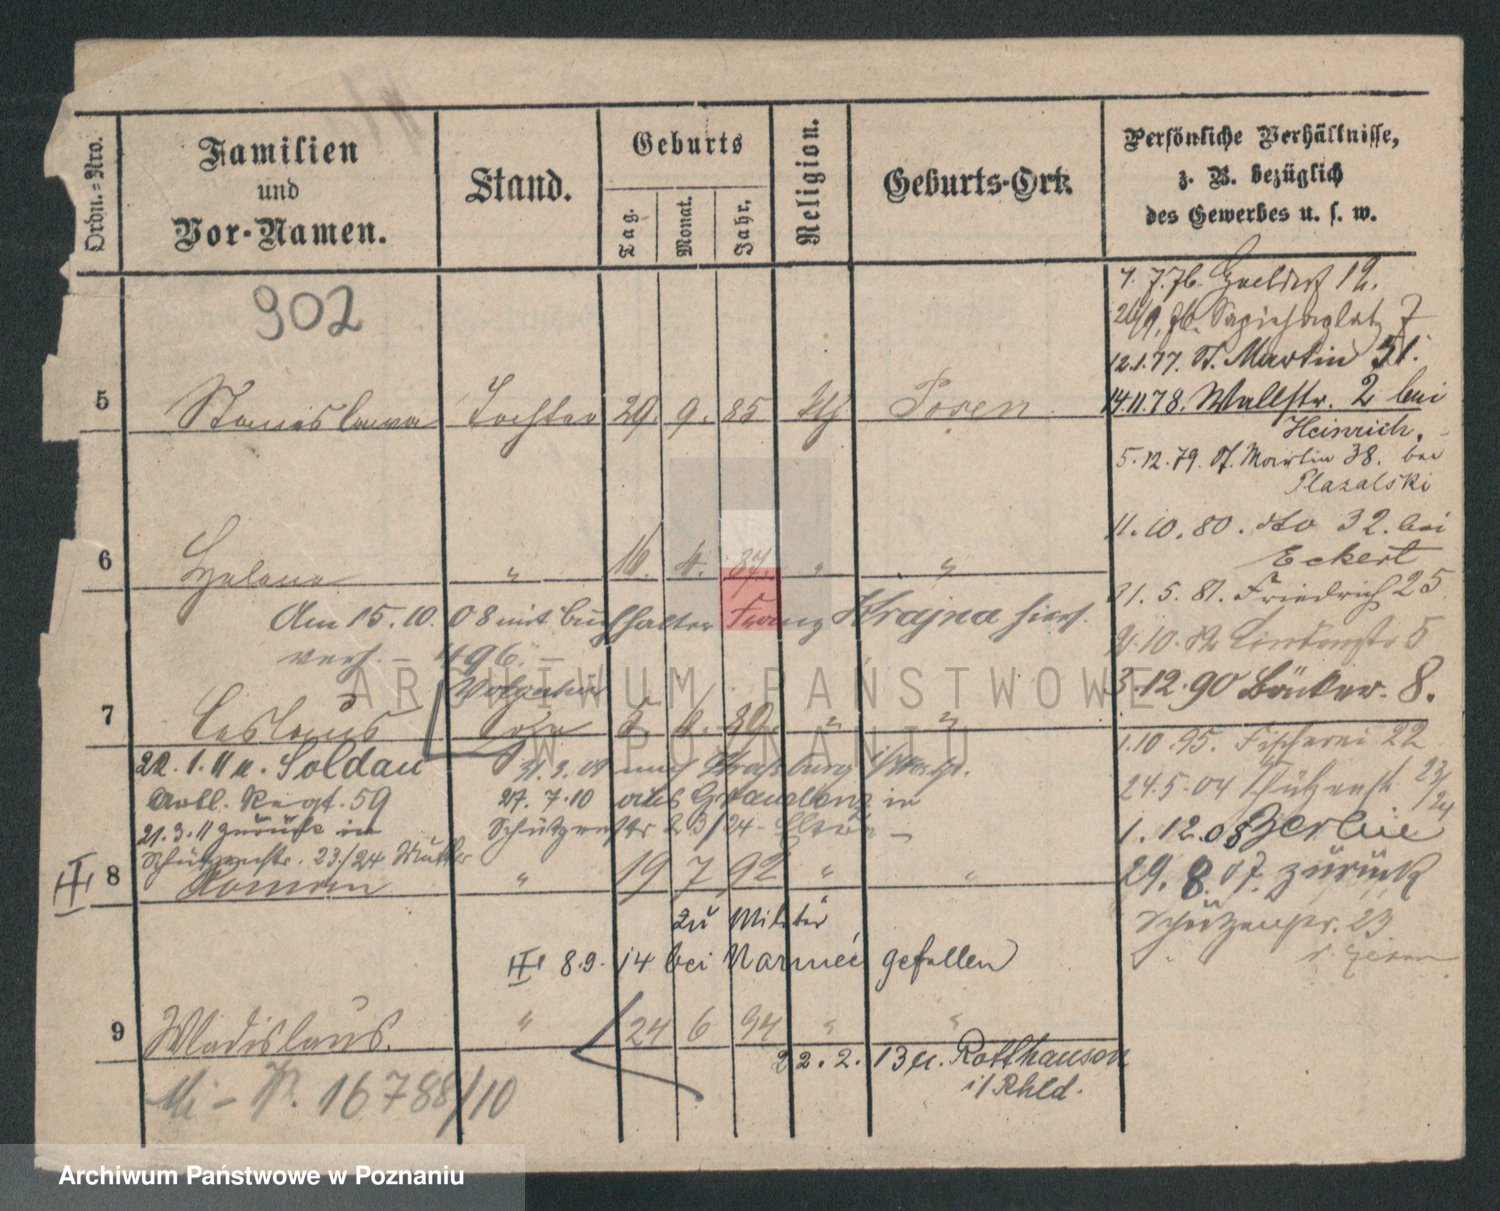 Ordn.=Nro.
Familien
und
Vor-Namen.
Stand.
Geburts
Tag.
Monat.
Jahr.
Religion.
Geburts-Ort.
Persönliche Verhältnisse,
z. B. bezüglich
des Gewerbes u. s. w.
902
5 Stanislawa Tochter 29. 9. 85 kth Posen
6 Helena " 16. 4. 87. " "
Am 15. 10. 08 mit Buchhalter Franz Krajna hier
verh. – 496. –
7 Ceslaus Sohn 5. 6. 89. " "
22. 1. 11 n. Soldau
31. 3. 09 nach Straßburg
Regt. 59
27. 7. 10 aus Graudenz in
21. 3. 11 zurück in
Schützenstr 23/24
Schützenstr. 23/24 Mutter
8 Roman " 19 7 92 " "
zu Militär
8. 9. 14 bei gefallen
9 Wladislaus. " 24 6 94 " "
22. 2. 13 n. Rotthausen
i/Rhld.
P. 16788/10
7. 76. 12.
26/9. 76. Sapiehaplatz 7
12. 1. 77. St. Martin 51.
14. 11. 78. Wallstr. 2 bei
Heinrich.
5. 12. 79. St. Martin 38. bei
Plazalski
11. 10. 80. dto 32. bei
Eckert
31. 5. 81. Friedrich 25
10. 82 5
3. 12. 90 Bäcker. 8.
1. 10. 95. Fischerei 22
24. 5. 04 Schützenst 23/24
1. 12. 08 Berlin
29. 8. 07. zurück
Schützenstr. 23
ARCHIWUM PAŃSTWOWE
W POZNANIU
Archiwum Państwowe w Poznaniu